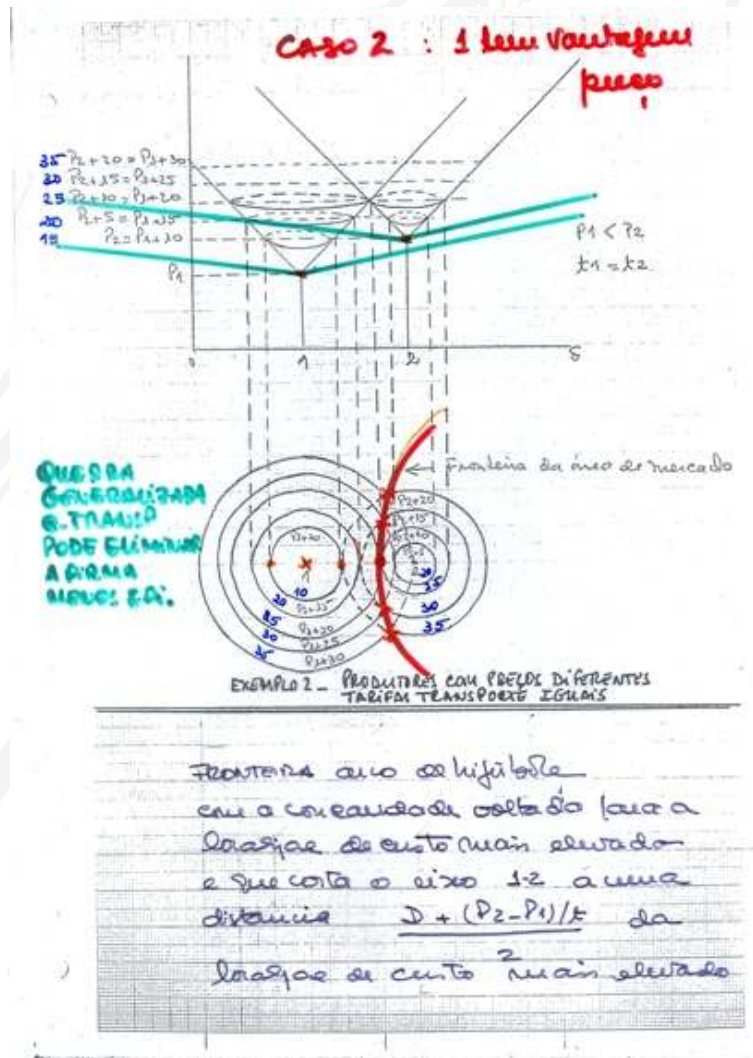 CASO 2 : 1 tem vantagem
preço
35 P2+20 = P1+30
30 P2+15 = P1+25
25 P2+10 = P1+20
20 P2+5 = P1+15
15 P2 = P1+10
P1
P1 < P2
t1 = t2
0 1 2 S
Fronteira da área de mercado
QUEBRA
GENERALIZADA
C. TRANSP
PODE ELIMINAR
A FIRMA
MENOS EFI.
P2+20
P2+15
P2+10
P2+5
P1+10
1
10
20 P1+15
25 P1+20
30 P1+25
35 P1+30
20
25
30
35
EXEMPLO 2 - PRODUTORES COM PREÇOS DIFERENTES
TARIFAS TRANSPORTE IGUAIS
FRONTEIRA arco de hipérbole
com a concavidade voltada para a
localizac de custo mais elevado
e que corta o eixo 1-2 a uma
distância D + (P2-P1)/t da
2
localizac de custo mais elevado